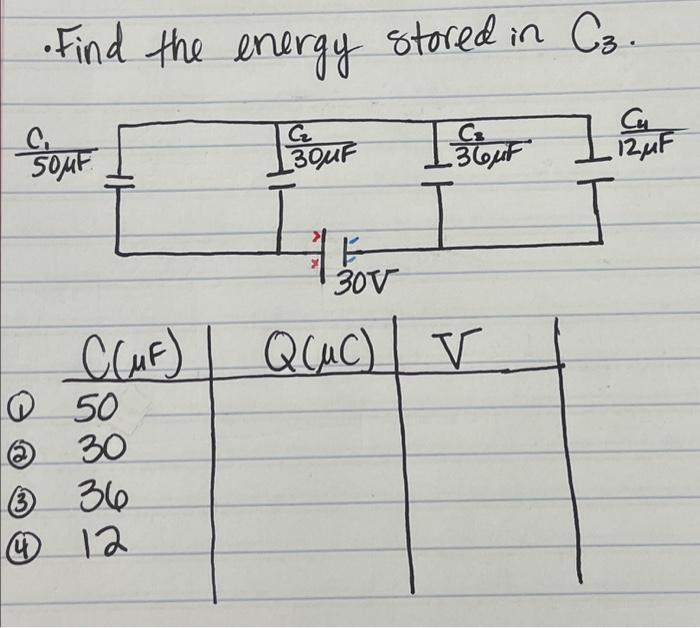 •Find the energy stored in C3.
C1
50µF
C2
30µF
C3
36µF
C4
12µF
30V
C(µF) Q(µC) V
① 50
② 30
③ 36
④ 12